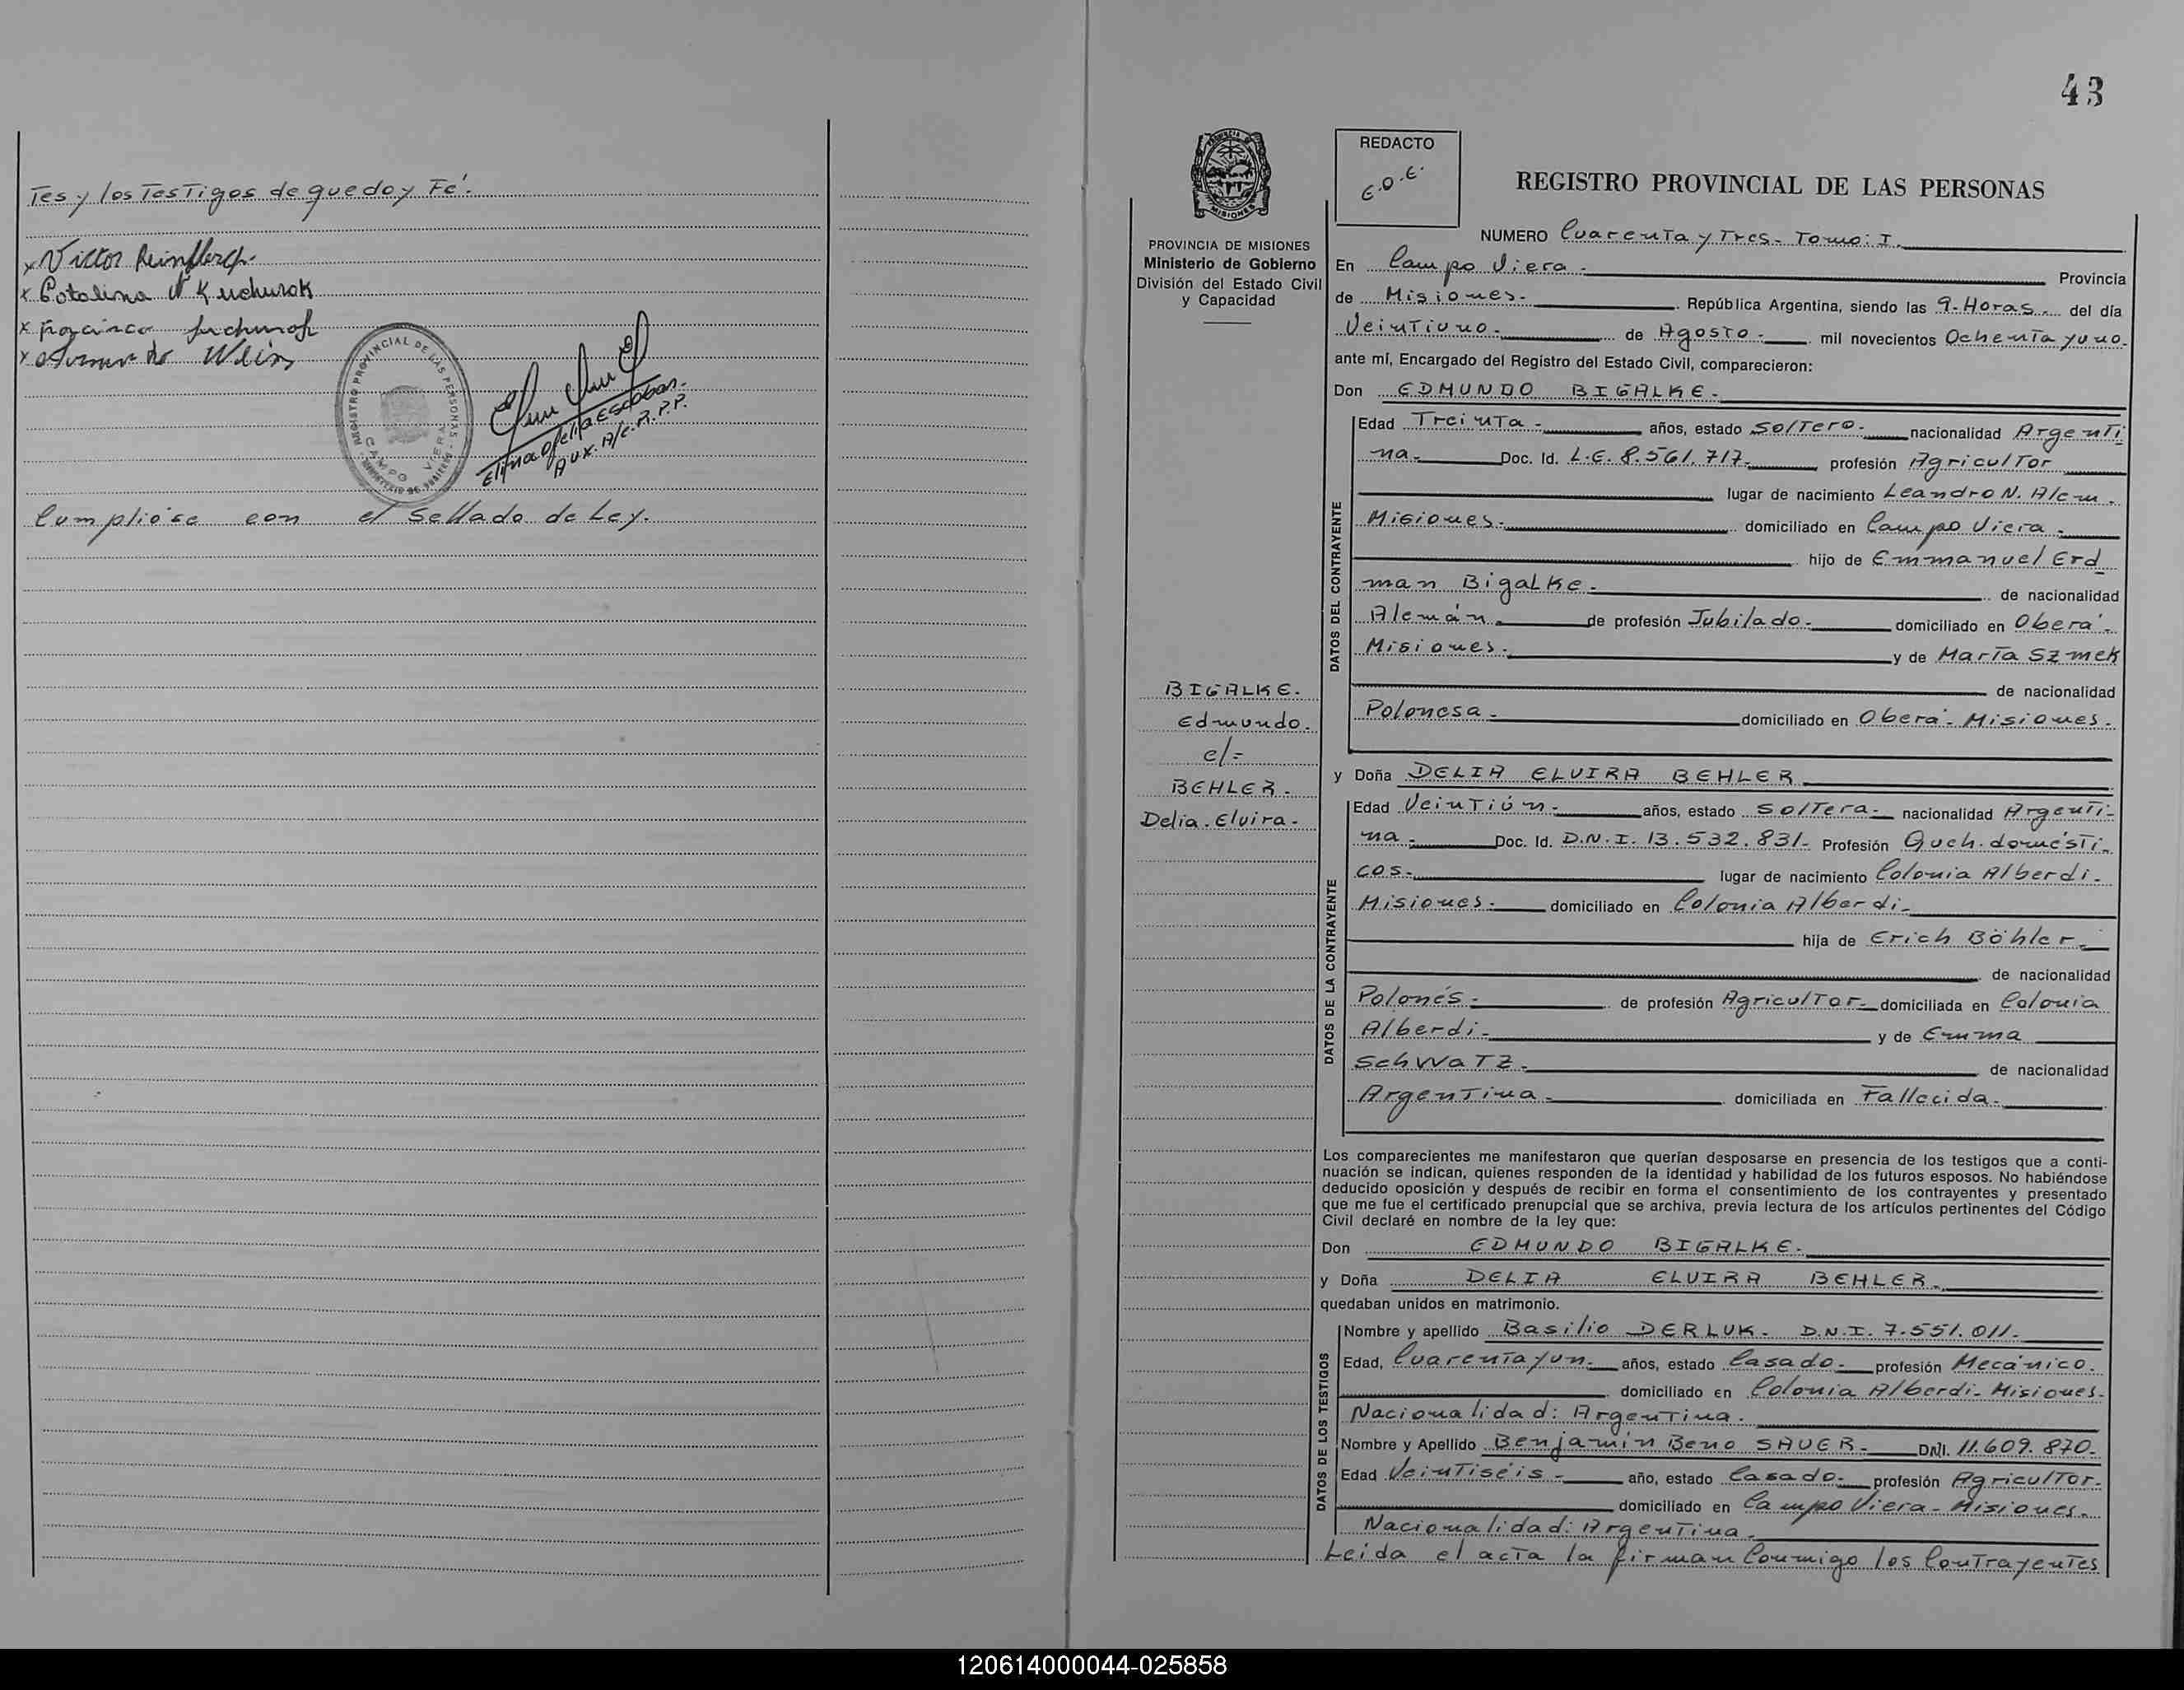 Tes y los Testigos de que doy Fé.
x Victor
x Catalina N Kuchurak
x
x Wdin
REGISTRO PROVINCIAL DE LAS PERSONAS
CAMPO VIERA
Elina Ofelia Escobar.
Aux. A/c. R.P.P.
Cumplióse con el Sellado de Ley.
43
REDACTO
E.O.E.
MISIONES
PROVINCIA DE MISIONES
Ministerio de Gobierno
División del Estado Civil
y Capacidad
BIGALKE.
Edmundo.
c/=
BEHLER.
Delia. Elvira.-
REGISTRO PROVINCIAL DE LAS PERSONAS
NUMERO Cuarenta y Tres- Tomo: I.
En Campo Viera.- Provincia
de Misiones.- República Argentina, siendo las 9-Horas. del día
Veintiuno.- de Agosto.- mil novecientos Ochenta y uno.
ante mí, Encargado del Registro del Estado Civil, comparecieron:
Don EDMUNDO BIGALKE.-
DATOS DEL CONTRAYENTE
Edad Treinta.- años, estado Soltero.- nacionalidad Argenti
na.- Doc. Id. L.E. 8.561.717- profesión Agricultor
lugar de nacimiento Leandro N. Alem.
Misiones.- domiciliado en Campo Viera.-
hijo de Emmanuel Erd
man Bigalke.- de nacionalidad
Alemán.- de profesión Jubilado.- domiciliado en Oberá.-
Misiones.- y de María Szmek
de nacionalidad
Polonesa.- domiciliado en Oberá- Misiones.
y Doña DELIA ELVIRA BEHLER
DATOS DE LA CONTRAYENTE
Edad Veintiún.- años, estado Soltera.- nacionalidad Argenti-
na.- Doc. Id. D.N.I. 13.532.831- Profesión Queh. domésti-
cos.- lugar de nacimiento Colonia Alberdi.
Misiones.- domiciliado en Colonia Alberdi-
hija de Erich Böhler.-
de nacionalidad
Polonés.- de profesión Agricultor- domiciliada en Colonia
Alberdi- y de Emma
Schwatz.- de nacionalidad
Argentina.- domiciliada en Fallecida.-
Los comparecientes me manifestaron que querían desposarse en presencia de los testigos que a conti-
nuación se indican, quienes responden de la identidad y habilidad de los futuros esposos. No habiéndose
deducido oposición y después de recibir en forma el consentimiento de los contrayentes y presentado
que me fue el certificado prenupcial que se archiva, previa lectura de los artículos pertinentes del Código
Civil declaré en nombre de la ley que:
Don EDMUNDO BIGALKE.
y Doña DELIA ELVIRA BEHLER.
quedaban unidos en matrimonio.
DATOS DE LOS TESTIGOS
Nombre y apellido Basilio DERLUK- D.N.I. 7.551.011.-
Edad, Cuarenta y un.- años, estado Casado.- profesión Mecánico.
domiciliado en Colonia Alberdi- Misiones.
Nacionalidad: Argentina.
Nombre y Apellido Benjamin Beno SAUER- DNI. 11.609.870-
Edad Veintiséis.- año, estado Casado.- profesión Agricultor-
domiciliado en Campo Viera- Misiones.
Nacionalidad: Argentina.
Leida el acta la firman Conmigo los Contrayentes
120614000044-025858